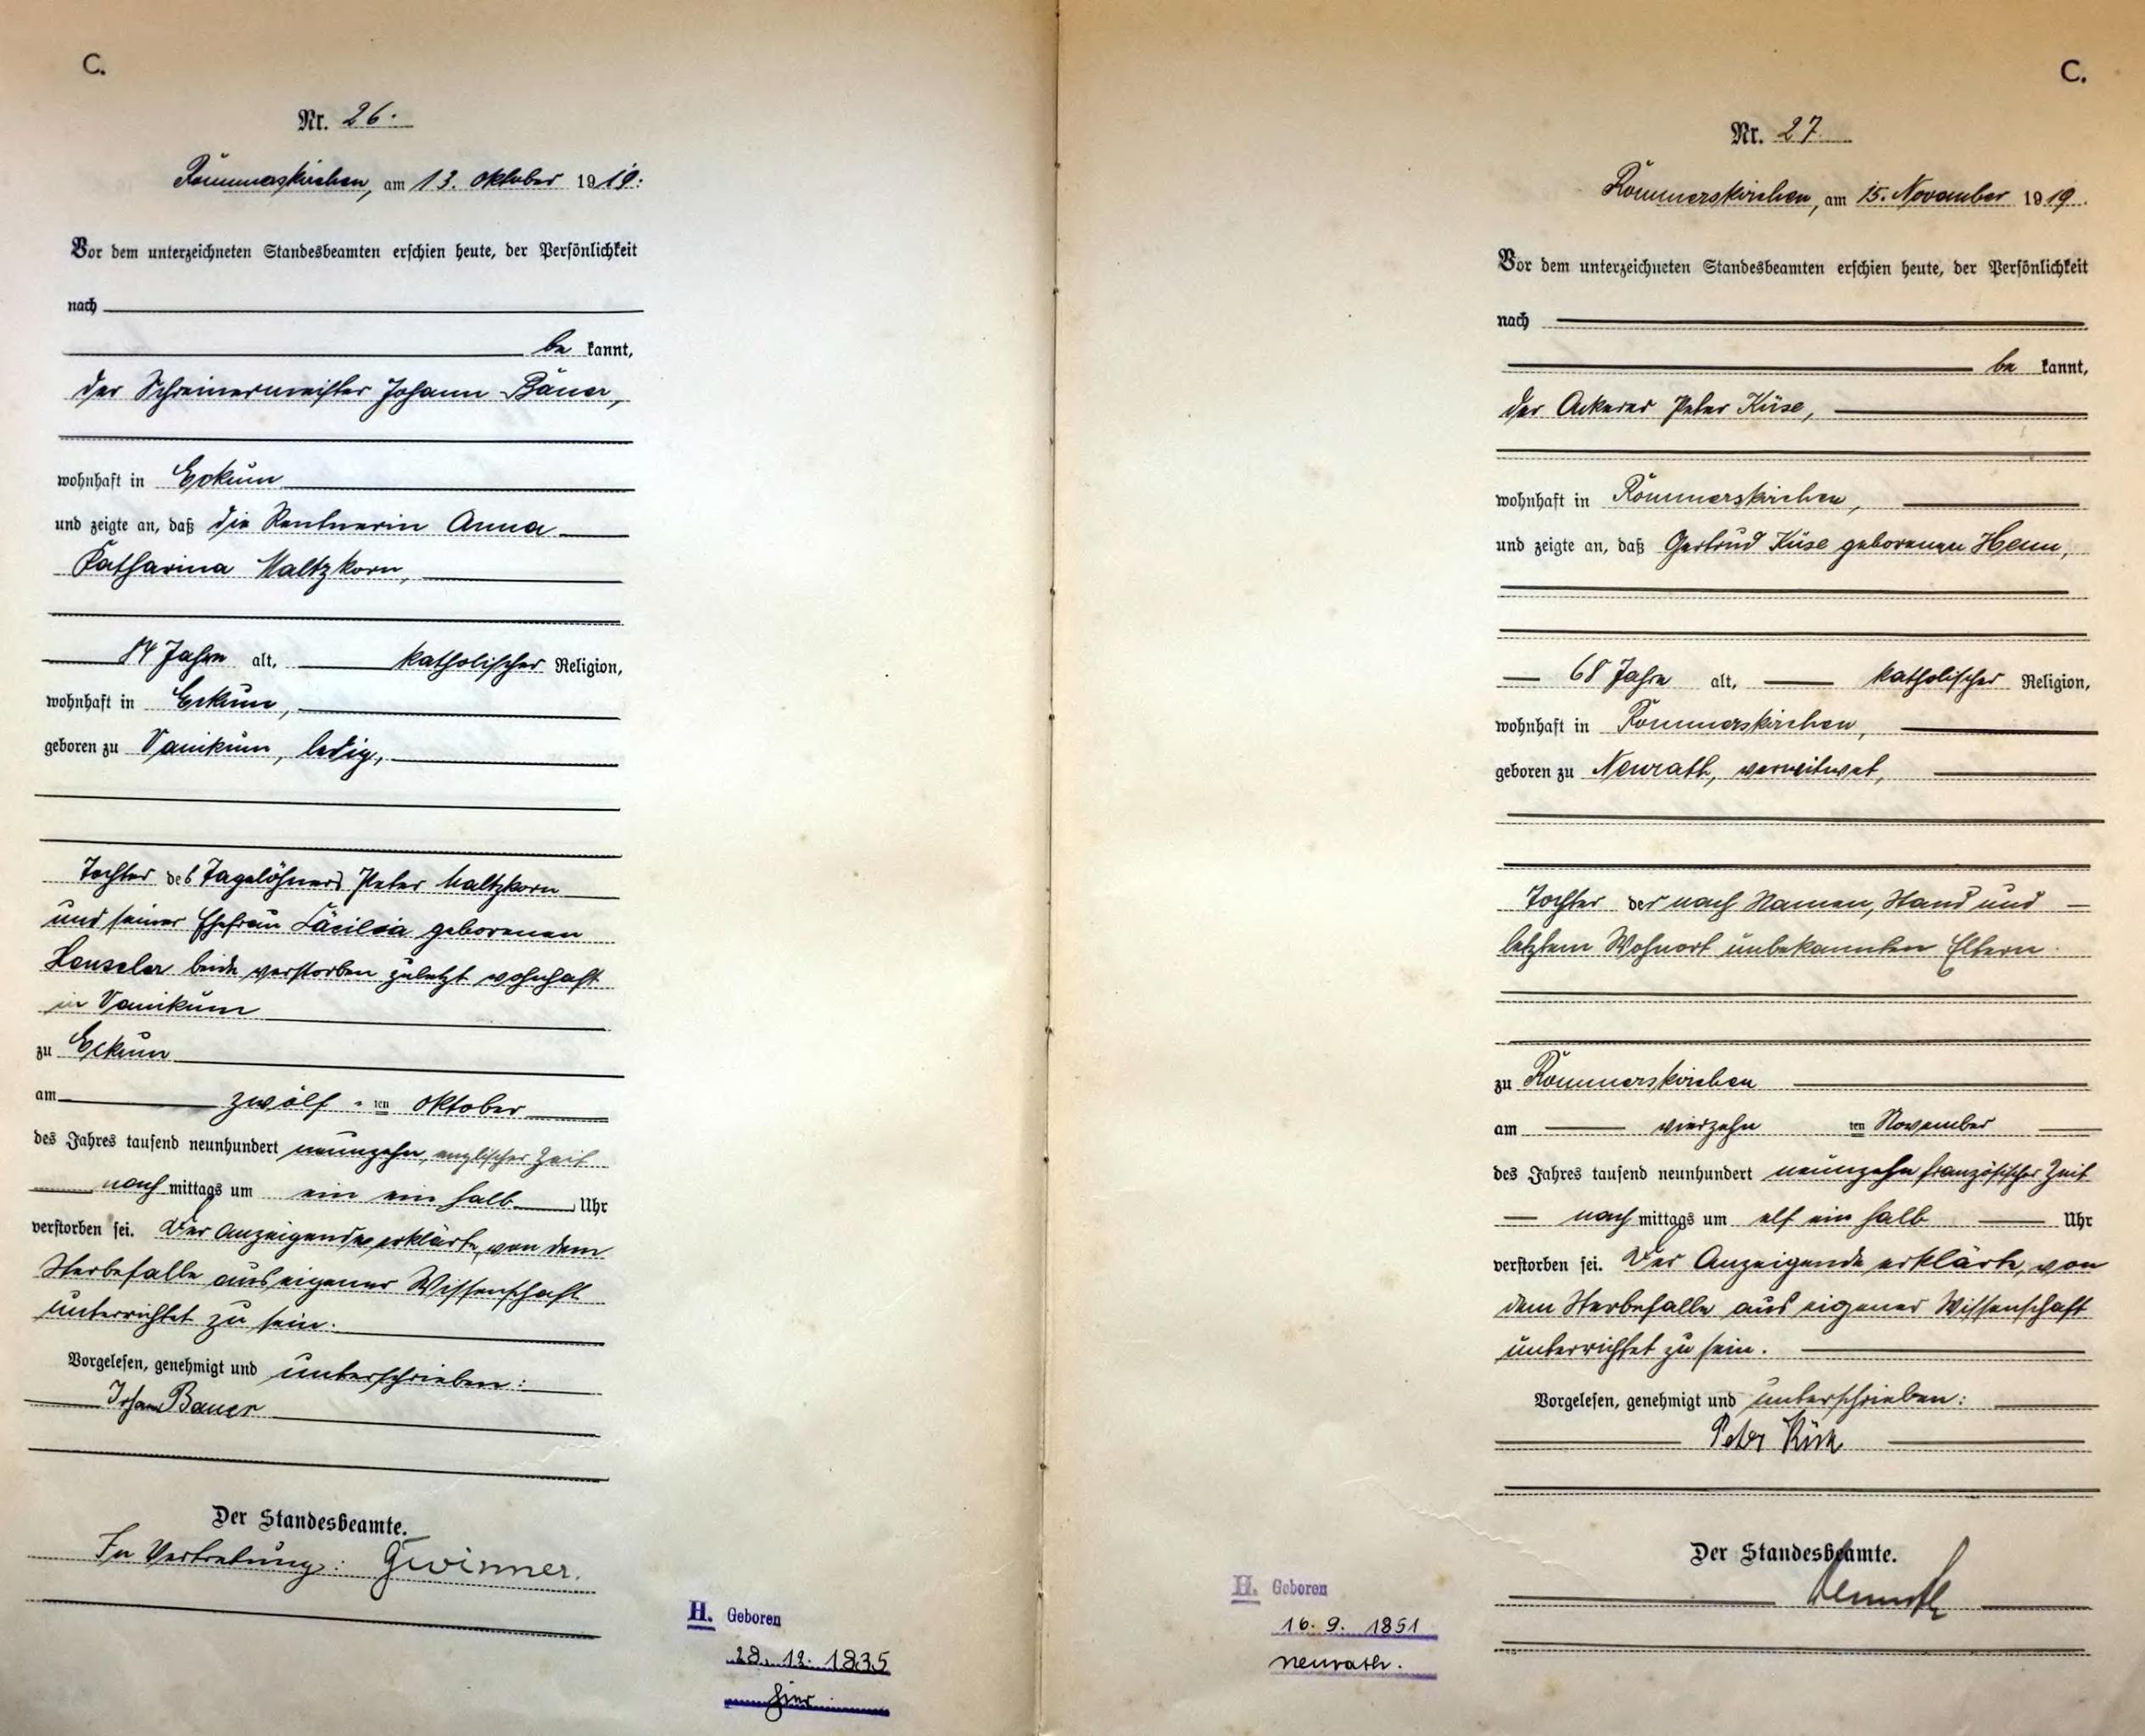 C.
Nr. 26.
Rommerskirchen, am 13. Oktober 1919.
Vor dem unterzeichneten Standesbeamten erschien heute, der Persönlichkeit
nach
be kannt,
der Schreinermeister Johann Bauer,
wohnhaft in Eckum
und zeigte an, daß die Rentnerin Anna
Katharina Maltzkorn,
84 Jahre alt, katholischer Religion,
wohnhaft in Eckum,
geboren zu Vanikum, ledig,
Tochter des Tagelöhners Peter Maltzkorn
und seiner Ehefrau Cäcilia geborenen
Henseler beide verstorben zuletzt wohnhaft
in Vanikum
zu Eckum
am zwölf ten Oktober
des Jahres tausend neunhundert neunzehn, englischer Zeit
nach mittags um ein ein halb Uhr
verstorben sei. Der Anzeigende erklärte, von dem
Sterbefalle aus eigener Wissenschaft
unterrichtet zu sein.
Vorgelesen, genehmigt und unterschrieben:
Johann Bauer
Der Standesbeamte.
In Vertretung: Gwinner.
H. Geboren
28. 12. 1835
hier
C.
Nr. 27
Rommerskirchen, am 15. November 1919.
Vor dem unterzeichneten Standesbeamten erschien heute, der Persönlichkeit
nach
be kannt,
der Ackerer Peter Küse,
wohnhaft in Rommerskirchen,
und zeigte an, daß Gertrud Küse geborenen Henn,
68 Jahre alt, katholischer Religion,
wohnhaft in Rommerskirchen,
geboren zu Neurath, verwitwet,
Tochter der nach Namen, Stand und
letztem Wohnort unbekannten Eltern.
zu Rommerskirchen
am vierzehn ten November
des Jahres tausend neunhundert neunzehn französischer Zeit
nach mittags um elf ein halb Uhr
verstorben sei. Der Anzeigende erklärte, von
dem Sterbefalle aus eigener Wissenschaft
unterrichtet zu sein.
Vorgelesen, genehmigt und unterschrieben:
Peter Küse
Der Standesbeamte.
H. Geboren
16. 9. 1851
Neurath.